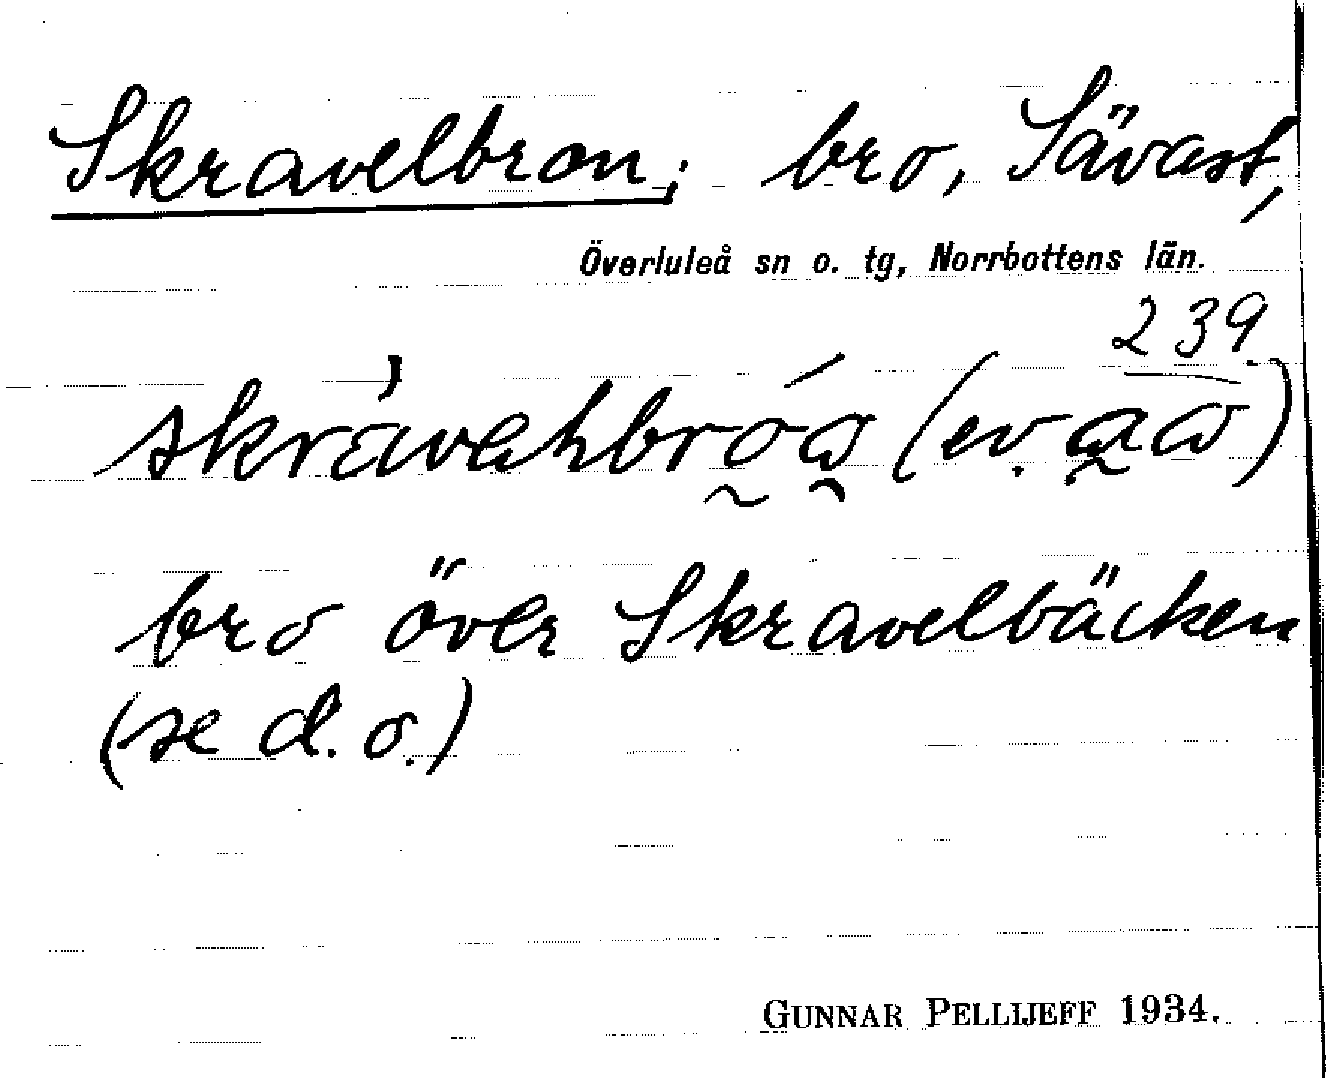 Skravelbron; bro, Sävast,
Överluleå sn o. tg, Norrbottens län.
239
(ev.
bro över Skravelbäcken
(se d. o.)
GUNNAR PELLIJEFF 1934.